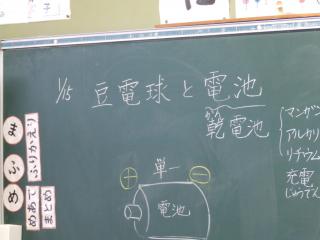 1/15 豆電球と電池
かん
乾電池
マンガン
アルカリ
リチウム
充電
じゅうでん
単一
+ −
電池
み
ふ
め
ふりかえり
まとめ
めあて